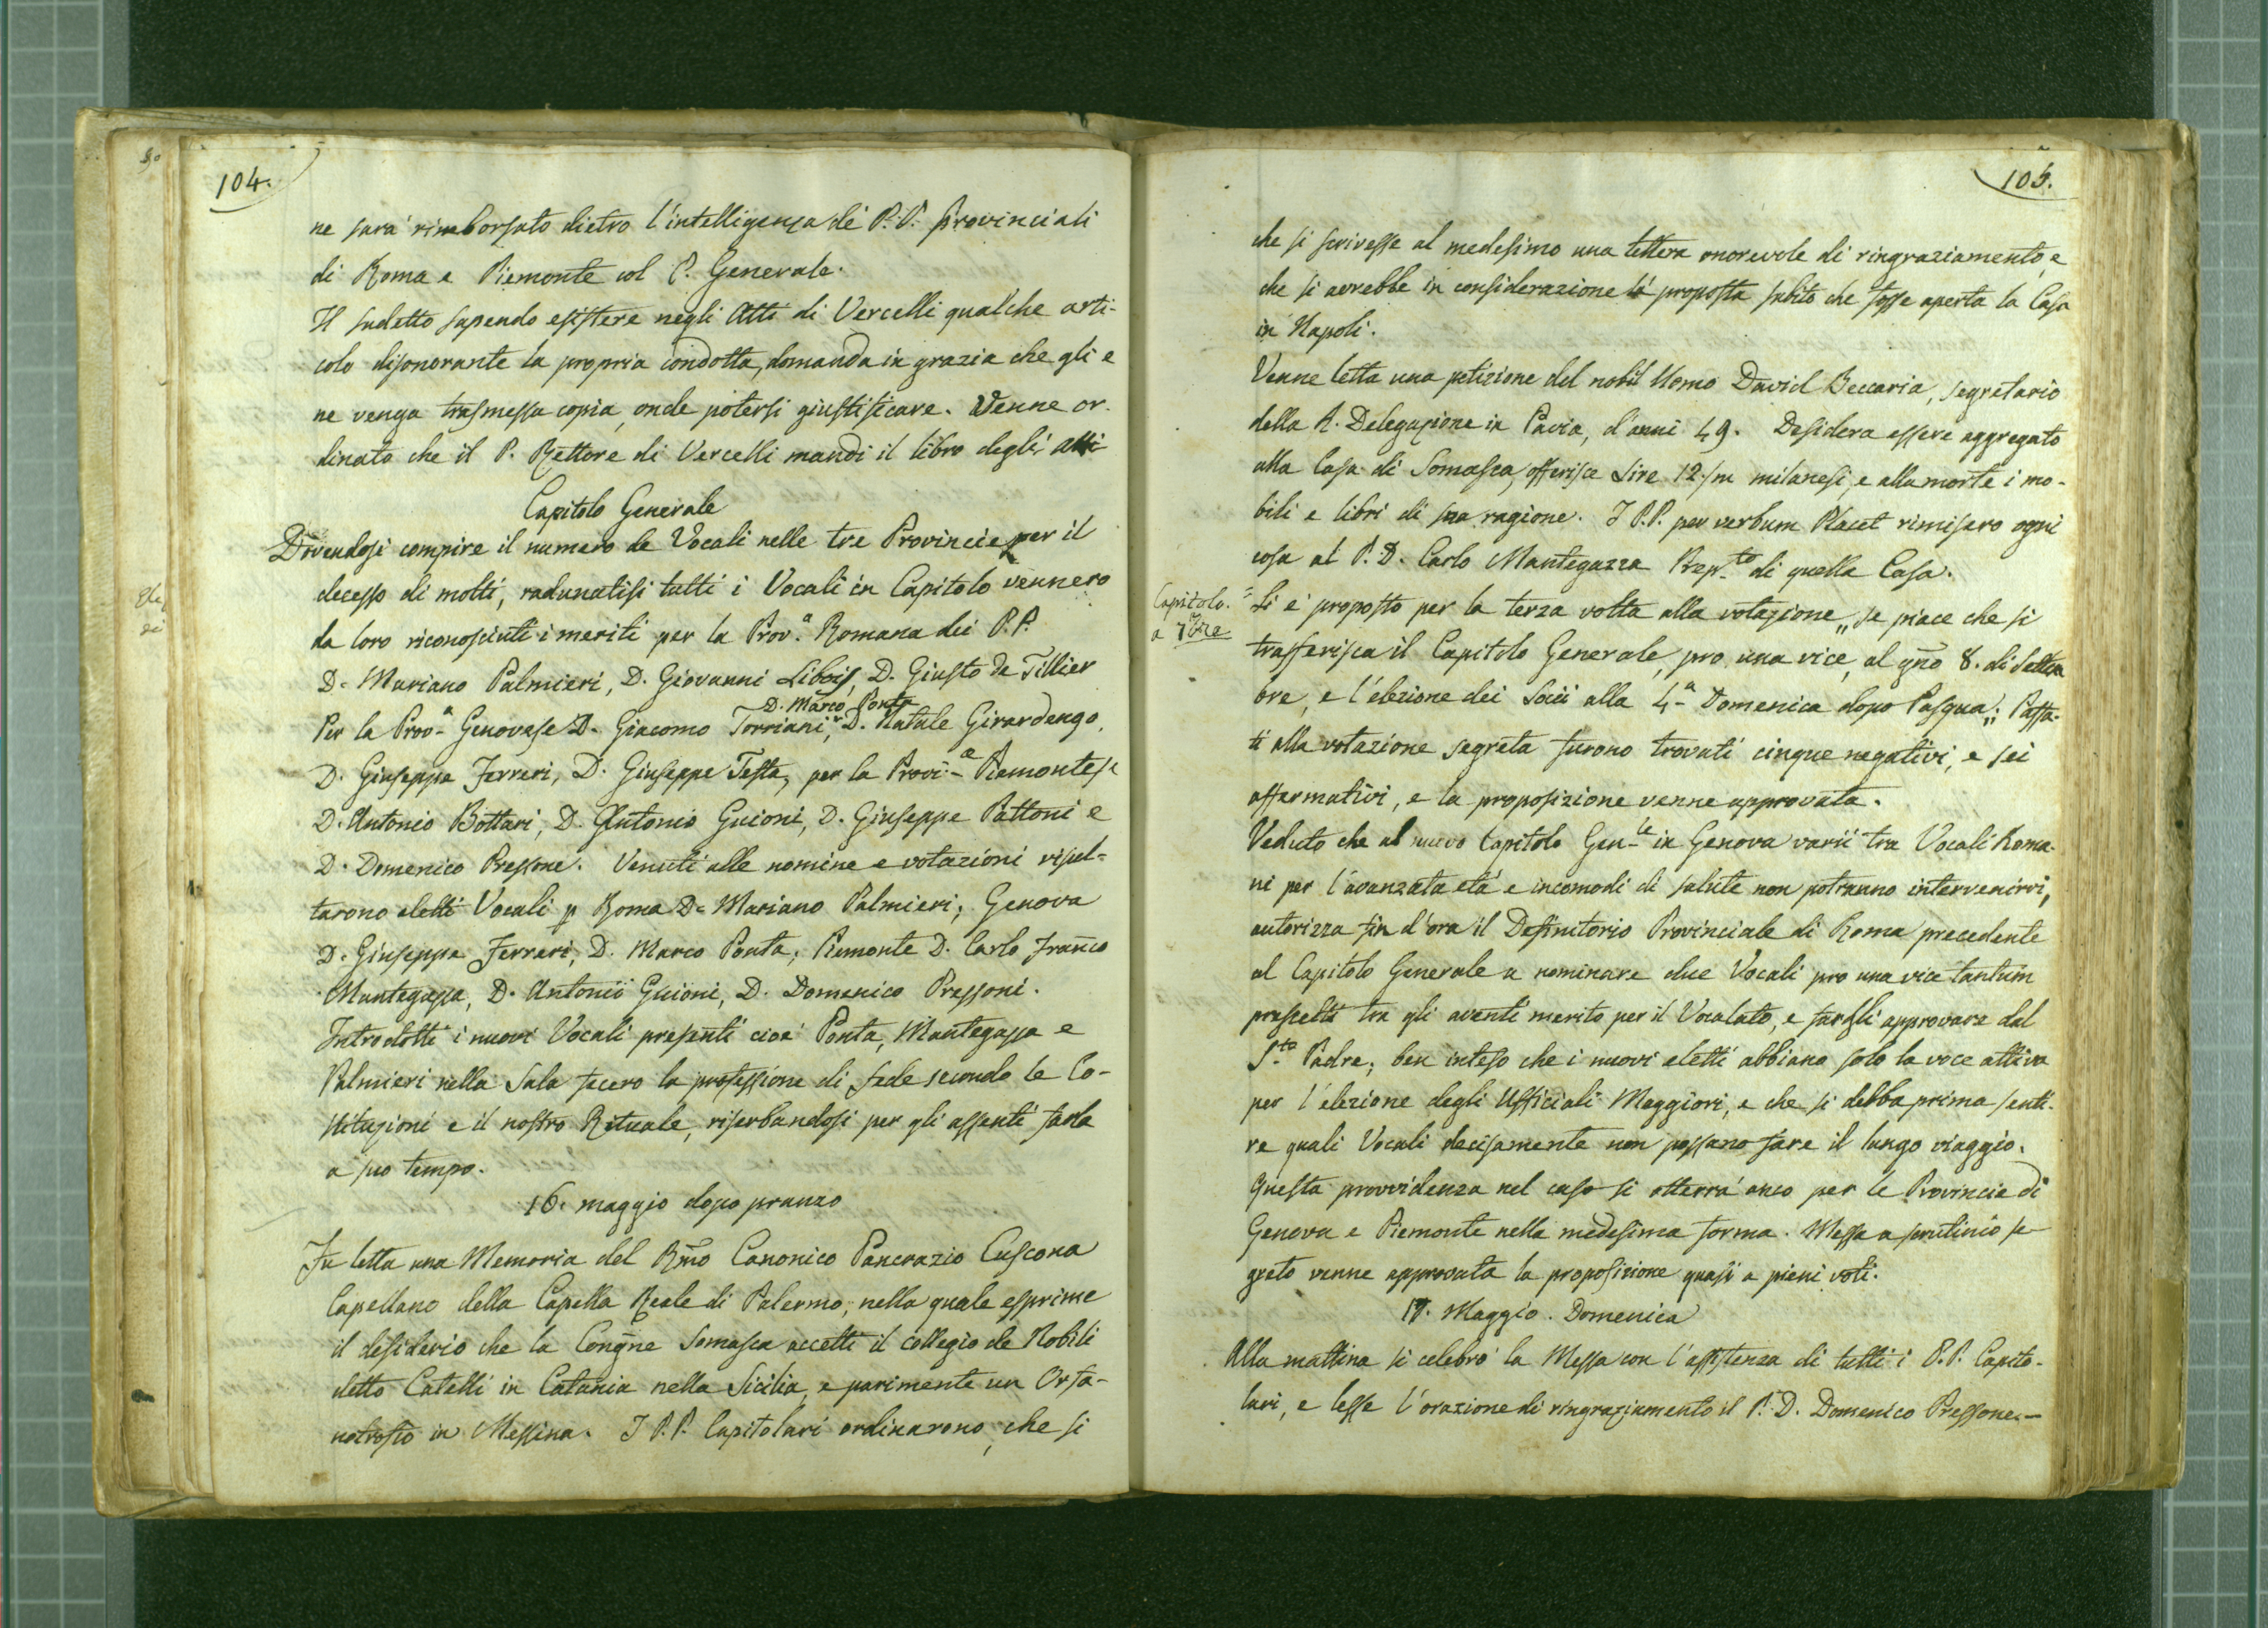 104.
ne sarà rimborsato dietro l'intelligenza de' P.P. Provinciali
di Roma e Piemonte col P. Generale.
Il sudetto sapendo esistere negli Atti di Vercelli qualche arti-
colo disonorante la propria condotta, domanda in grazia che gli e
ne venga trasmessa copia, onde potersi giustificare. Venne or-
dinato che il P. Rettore di Vercelli mandi il libro degli atti
Capitolo Generale
Dovendosi compire il numero de Vocali nelle tre Provincie per il
decesso di molti, radunatisi tutti i Vocali in Capitolo vennero
da loro riconosciuti i meriti per la Prov.a Romana dei P.P.
D. Mariano Palmieri, D. Giovanni Libois, D. Giusto de Tillier
D. Marco Ponta
Per la Prov.a Genovese D. Giacomo Torriani, D. Natale Girardengo,
D. Giuseppe Ferreri, D. Giuseppe Testa, per la Provi.a Piemontese
D. Antonio Bottari, D. Antonio Guioni, D. Giuseppe Pattoni e
D. Domenico Pressone. Venuti alle nomine e votazioni risul-
tarono eletti Vocali p Roma D. Mariano Palmieri; Genova
D. Giuseppe Ferreri, D. Marco Ponta; Piemonte D. Carlo Franco
Mantegazza, D. Antonio Guioni, D. Domenico Pressoni.
Introdotti i nuovi Vocali presenti cioè Ponta, Mantegazza e
Palmieri nella Sala fecero la professione di fede secondo le Co-
stituzioni e il nostro Rituale, riserbandosi per gli assenti farla
a suo tempo.
16. maggio dopo pranzo
Fu letta una Memoria del Rmo Canonico Pancrazio Cuscona
Capellano della Capella Reale di Palermo, nella quale esprime
il desiderio che la Congne Somasca accetti il collegio de Nobili
detto Cutelli in Catania nella Sicilia, e parimente un Orfa-
notrofio in Messina. I P.P. Capitolari ordinarono, che si
105.
che si scrivesse al medesimo una lettera onorevole di ringraziamento, e
che si avrebbe in considerazione la proposta subito che fosse aperta la Casa
in Napoli.
Venne letta una petizione del nobil Uomo David Beccaria, segretario
della R. Delegazione in Pavia, d'anni 49. Desidera essere aggregato
alla Casa di Somasca, offerisce Lire 12/m milanesi, e alla morte i mo-
bili e libri di sua ragione. I P.P. per verbum Placet rimisero ogni
cosa al P. D. Carlo Mantegazza Rep.to di quella Casa.
Capitolo.
a 7bre
Si è proposto per la terza volta alla votazione „se piace che si
trasferisca il Capitolo Generale, pro una vice, al gno 8. di Settem
bre, e l'elezione dei Socii alla 4.a Domenica dopo Pasqua„: Passa-
ti alla votazione segreta furono trovati cinque negativi, e sei
affermativi, e la proposizione venne approvata.
Veduto che al nuovo Capitolo Gen.le in Genova varii tra Vocali Roma-
ni per l'avanzata età e incomodi di salute non potranno intervenirvi,
autorizza fin d'ora il Definitorio Provinciale di Roma precedente
al Capitolo Generale a nominare due Vocali pro una vice tantum
prescelti tra gli aventi merito per il Vocalato, e fargli approvare dal
S.to Padre; ben inteso che i nuovi eletti abbiano solo la voce attiva
per l'elezione degli Ufficiali Maggiori, e che si debba prima senti-
re quali Vocali decisamente non possano fare il lungo viaggio.
Questa provvidenza nel caso si otterrà anco per le Provincie di
Genova e Piemonte nella medesima forma. Messa a scrutinio se-
greto venne approvata la proposizione quasi a pieni voti.
17. Maggio. Domenica
Alla mattina si celebrò la Messa con l'assistenza di tutti i P.P. Capito-
lari, e lesse l'orazione di ringraziamento il P. D. Domenico Pressone.—